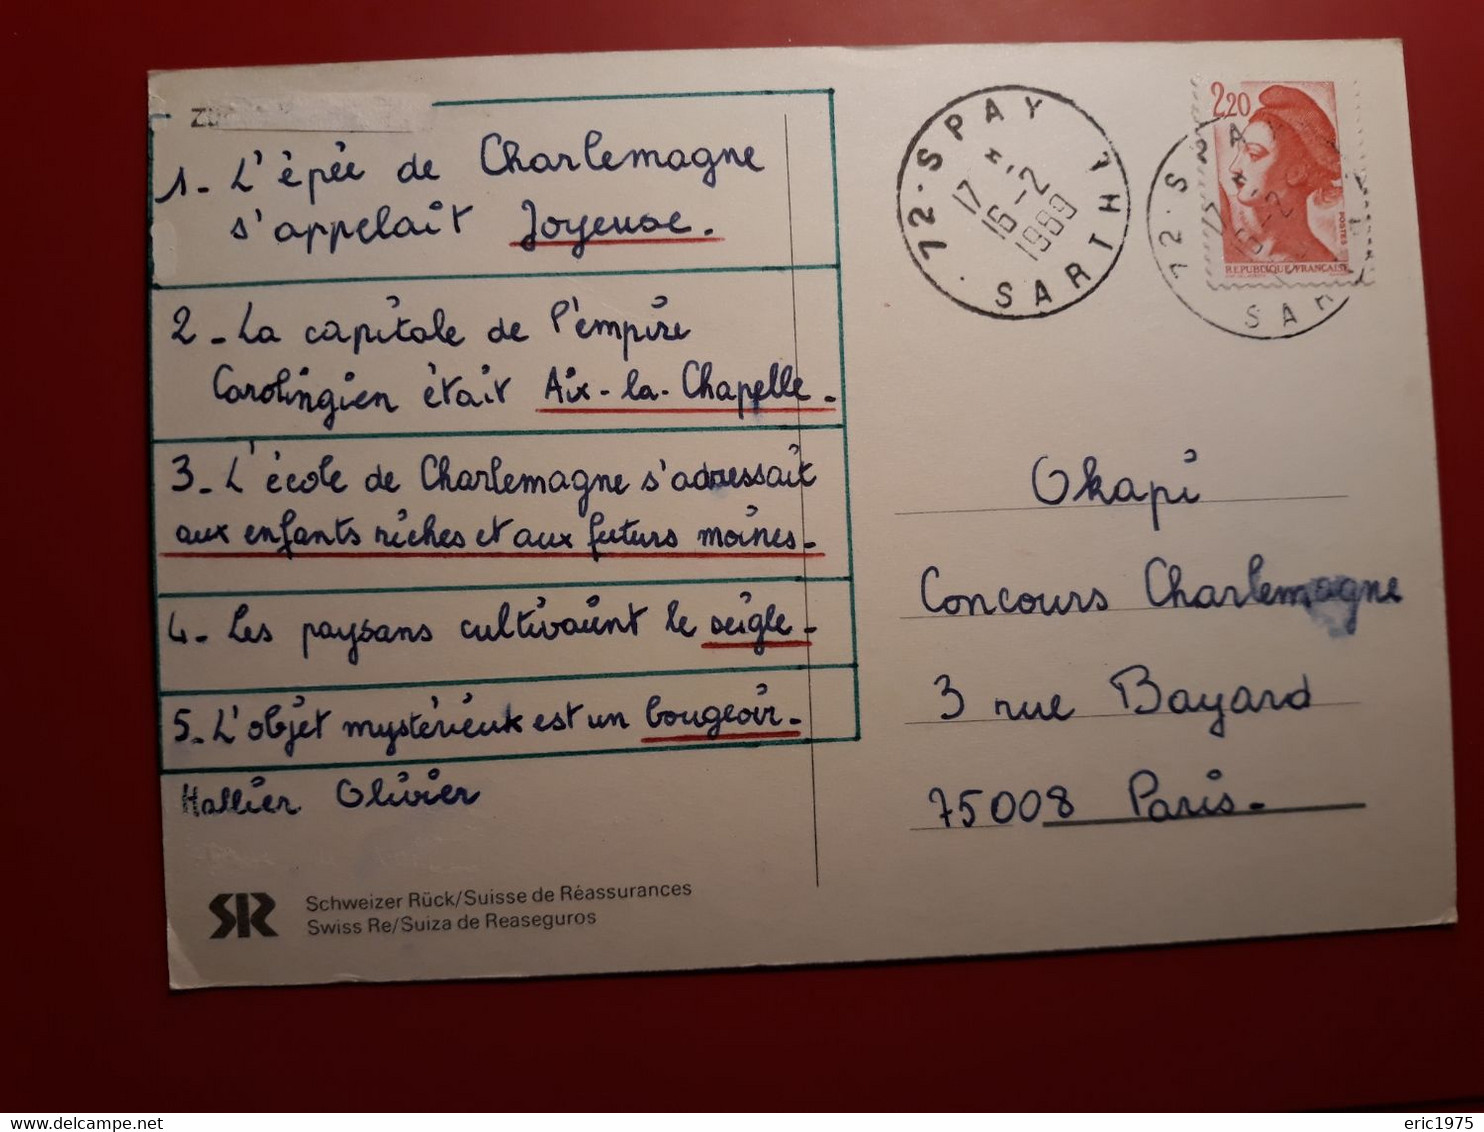 1- L'épée de Charlemagne
s'appelait Joyeuse.
2- La capitale de l'empire
Carolingien était Aix-la-Chapelle.
3- L'école de Charlemagne s'adressait
aux enfants riches et aux futurs moines.
4- Les paysans cultivaient le seigle.
5- L'objet mystérieux est un bougeoir.
Hallier Olivier
SR
Schweizer Rück/Suisse de Réassurances
Swiss Re/Suiza de Reaseguros
72·SPAY
17H
16-2
1989
SARTHE
2,20
POSTES
REPUBLIQUE FRANÇAISE
72·SPA
16-2
SAR
Okapi
Concours Charlemagne
3 rue Bayard
75008 Paris.
eric1975